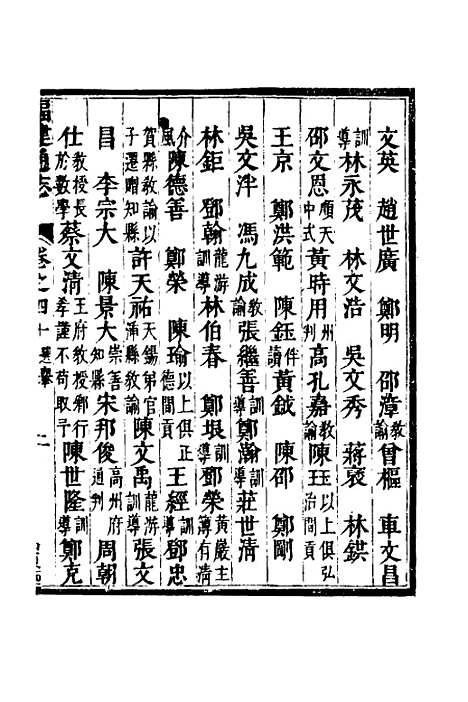 文英　趙世廣　鄭明　邵漳教諭曾樞　車文昌
訓導林永茂　林文浩　吳文秀　蔣褒　林鉷
邵文恩順天中式黃時用州判高孔嘉教諭陳玉以上俱弘治間貢
王京　鄭洪範　陳鈺伴讀黃鉞　陳邵　鄭剛
吳文泮　馮九成教諭張繼善訓導鄭瀚訓導莊世清
林鉅　鄧翰龍游訓導林伯春　鄭垠訓導鄧榮黃巖主薄有清
介風陳德善　鄭榮　陳瑜以上俱正德間貢王經訓導鄧忠
賀縣教諭以子遷贈知縣許天祐天錫弟官蒲縣教諭陳文禹龍游訓導張文
昌　李宗大　陳景大崇善知縣宋邦俊高州府通判周朝
仕教授長於數學蔡文清王府教授鄉行孝謹不苟取予陳世隆訓導鄭克
福建通志　卷之四十　選舉